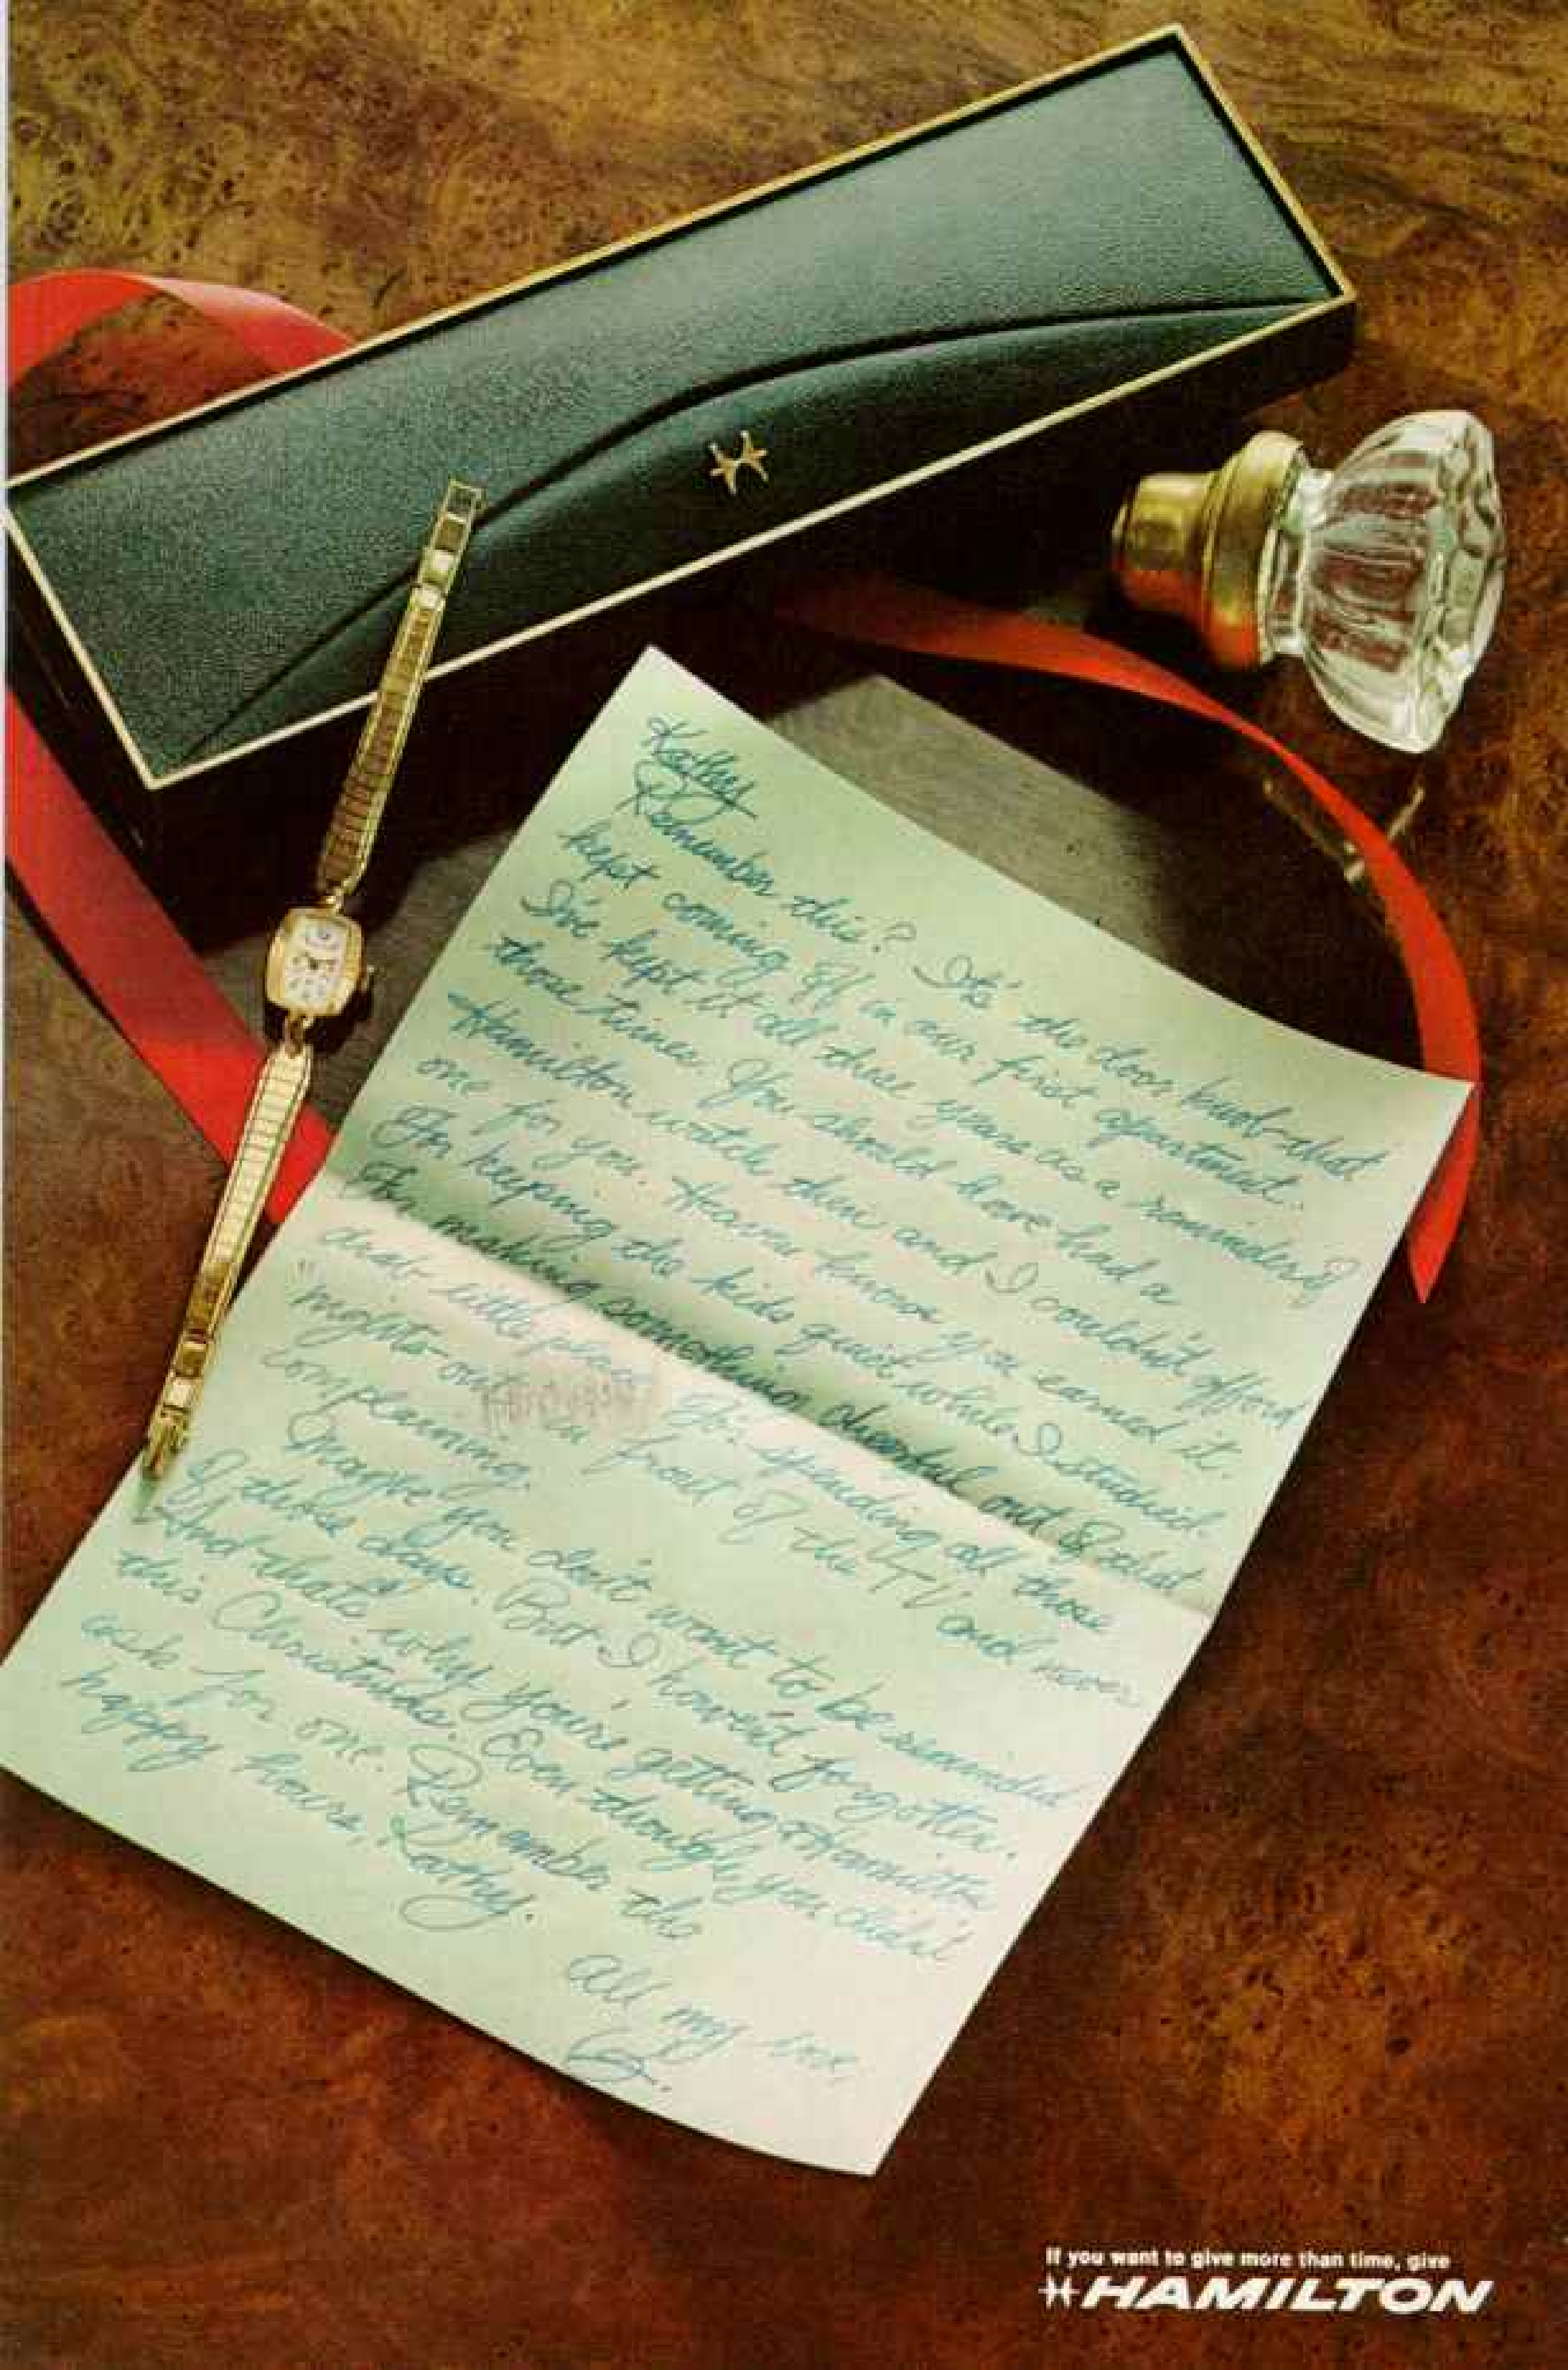 Kathy
Remember this? It's the door knob that
kept coming off in our first apartment.
I've kept it all these years as a reminder of
those times. You should have had a
Hamilton watch then and I couldn't afford
one for you. Heaven knows you earned it.
For keeping the kids quiet while I studied.
For making something cheerful out of what
that little place For spending all those
"nights out" in front of the TV and never
complaining.
Maybe you don't want to be reminded
of those days. But I haven't forgotten.
And that's why you're getting a Hamilton
this Christmas. Even though you didn't
ask for one. Remember the
happy hours, Kathy.
All my love,
G.
If you want to give more than time, give
HAMILTON